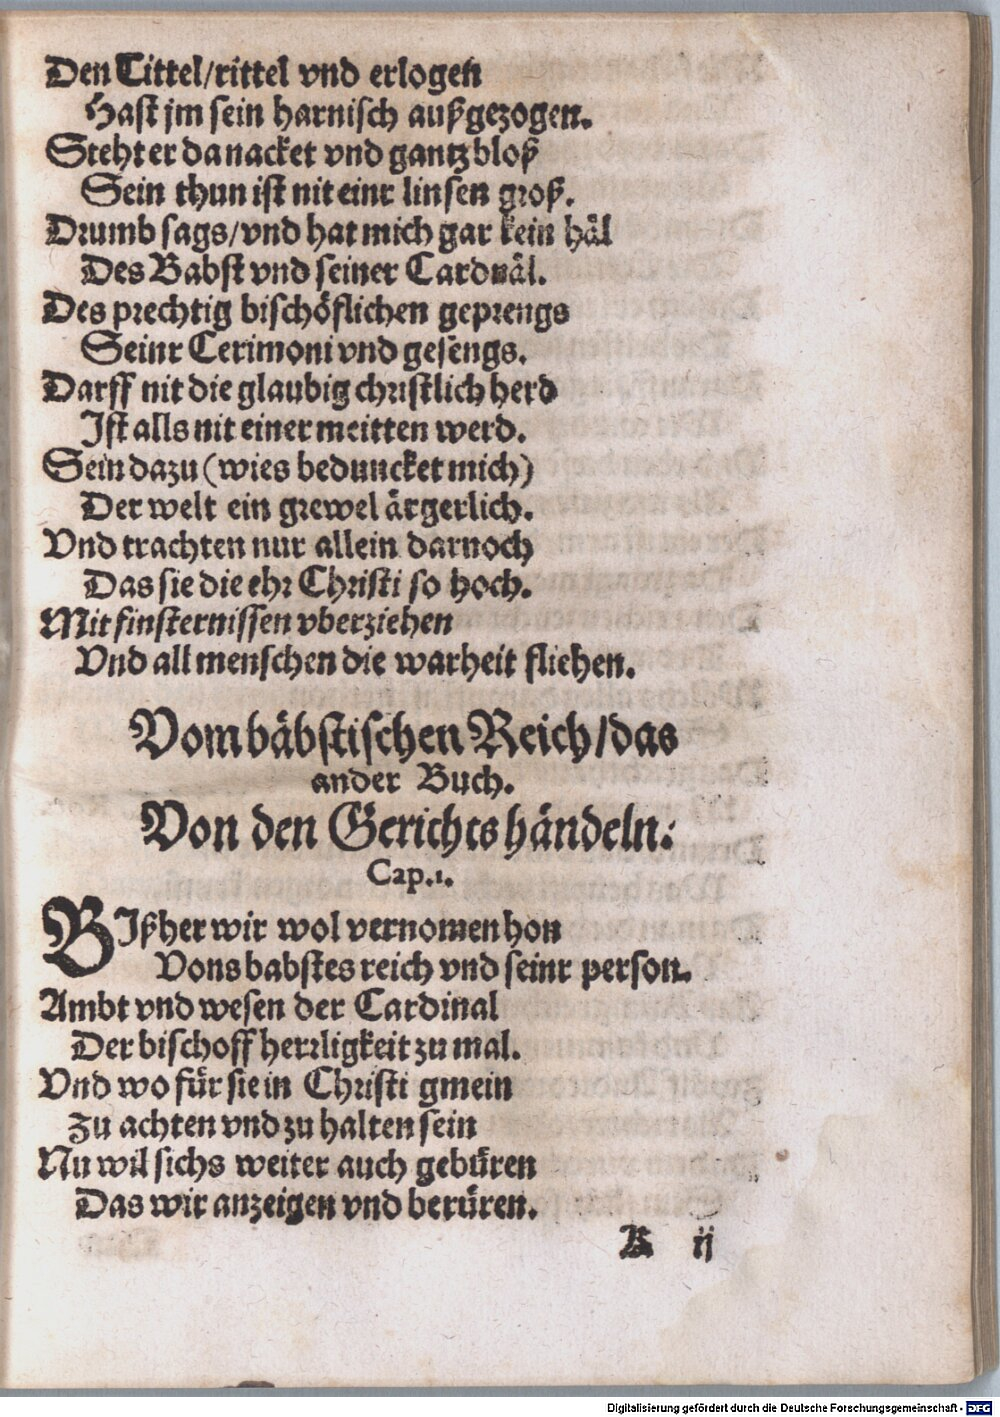 Den Tittel/rittel vnd erlogen
Hast jm sein harnisch außgezogen.
Steht er da nacket vnd gantz bloß
Sein thun ist nit einr linsen groß.
Drumb sags/vnd hat mich gar kein häl
Des Babst vnd seiner Cardnäl.
Des prechtig bischöflichen geprengs
Seinr Cerimoni vnd gesengs.
Darff nit die glaubig christlich herd
Ist alls nit einer meitten werd.
Sein dazu (wies beduncket mich)
Der welt ein grewel ärgerlich.
Vnd trachten nur allein darnoch
Das sie die ehr Christi so hoch.
Mit finsternissen vberziehen
Vnd all menschen die warheit fliehen.
Vom bäbstischen Reich/das
ander Buch.
Von den Gerichts händeln.
Cap.1.
BIßher wir wol vernomen hon
Vons babstes reich vnd seinr person.
Ambt vnd wesen der Cardinal
Der bischoff herrligkeit zu mal.
Vnd wo für sie in Christi gmein
Zu achten vnd zu halten sein
Nu wil sichs weiter auch gebüren
Das wir anzeigen vnd berüren.
K ij
Digitalisierung gefördert durch die Deutsche Forschungsgemeinschaft - DFG